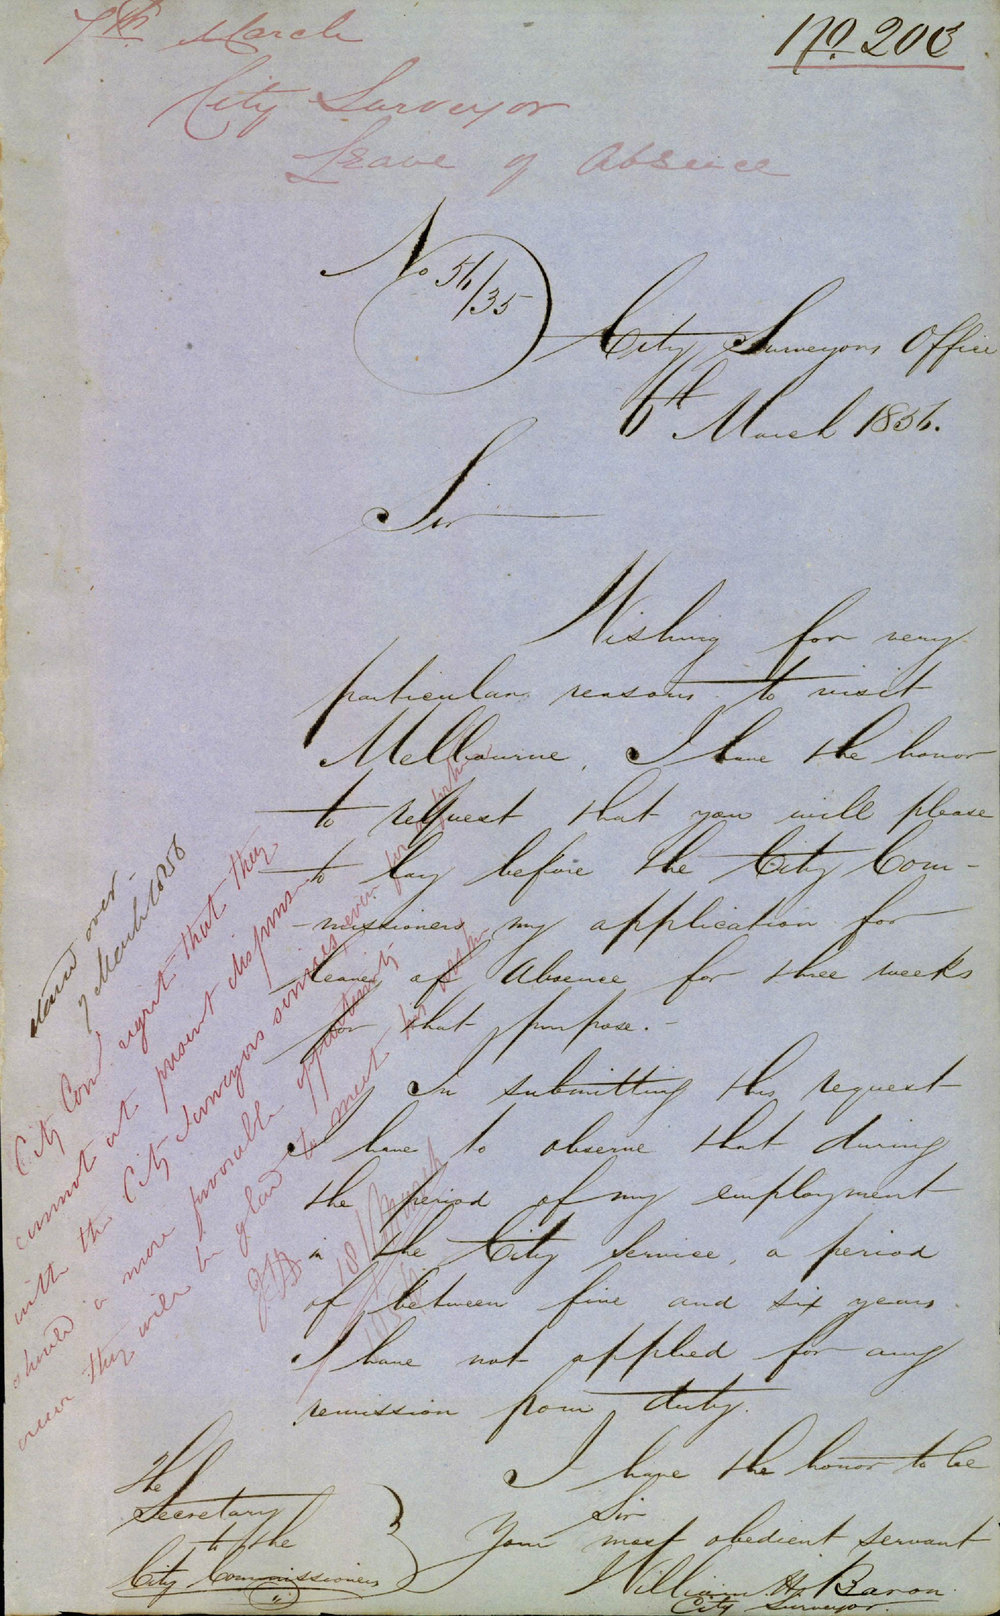 No. 203
7th March
City Surveyor
Leave of Absence
No 56/35
City Surveyors Office
6th March 1856.
Sir
Wishing for very
particular reasons to visit
Melbourne, I have the honor
to request that you will please
to lay before the City Com-
-missioners my application for
leave of Absence for three weeks
for that purpose.-
In submitting this request
I have to observe that during
the period of my employment
in the City Service, a period
of between five and six years
I have not applied for any
remission from duty.
I have the honor to be
Sir
Your most obedient servant
William H. Baron
City Surveyor.
The
Secretary
to the
City Commissioners
Stand over -
7 March 1856
City Comrs. regret that they
cannot at present dispense
with the City Surveyors services,
should a more favorable opportunity
occur they will be glad to meet his
18 March
1856